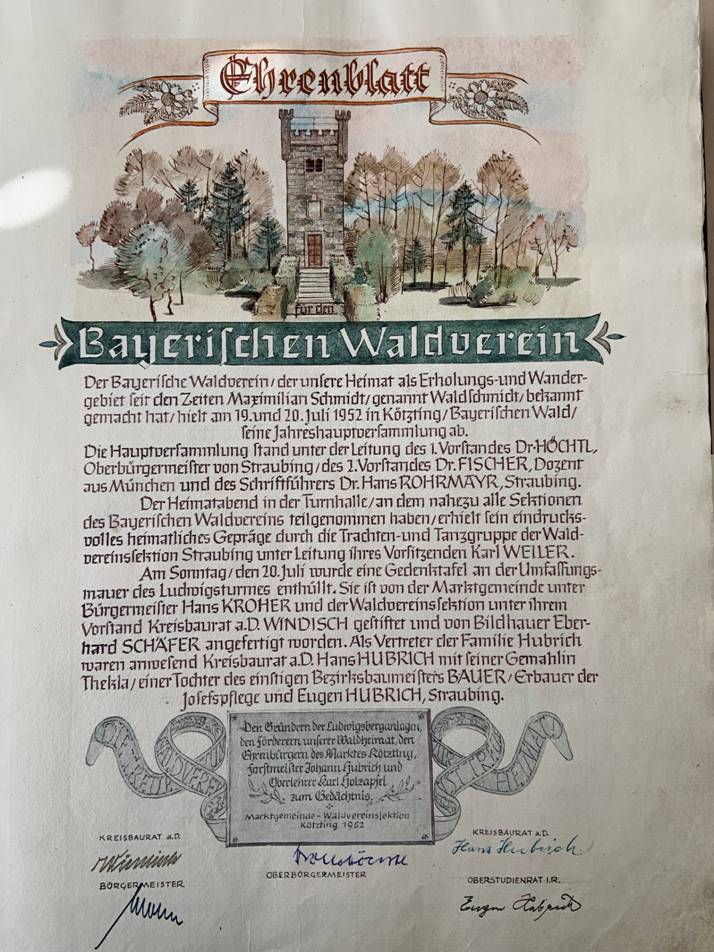 Ehrenblatt
für den
Bayerischen Waldverein
Der Bayerische Waldverein/der unsere Heimat als Erholungs-und Wander-
gebiet seit den Zeiten Maximilian Schmidt/genannt Waldschmidt/bekannt
gemacht hat/hielt am 19.und 20.Juli 1952 in Kötzting/Bayerischen Wald/
seine Jahreshauptversammlung ab.
Die Hauptversammlung stand unter der Leitung des 1.Vorstandes Dr.HÖCHTL,
Oberbürgermeister von Straubing/des 2.Vorstandes Dr.FISCHER, Dozent
aus München und des Schriftführers Dr.Hans ROHRMAYR, Straubing.
Der Heimatabend in der Turnhalle/an dem nahezu alle Sektionen
des Bayerischen Waldvereins teilgenommen haben/erhielt sein eindrucks-
volles heimatliches Gepräge durch die Trachten-und Tanzgruppe der Wald-
vereinssektion Straubing unter Leitung ihres Vorsitzenden Karl WEILER.
Am Sonntag/den 20.Juli wurde eine Gedenktafel an der Umfassungs-
mauer des Ludwigsturmes enthüllt. Sie ist von der Marktgemeinde unter
Bürgermeister Hans KROHER und der Waldvereinssektion unter ihrem
Vorstand Kreisbaurat a.D. WINDISCH gestiftet und von Bildhauer Eber-
hard SCHÄFER angefertigt worden. Als Vertreter der Familie Hubrich
waren anwesend Kreisbaurat a.D. Hans HUBRICH mit seiner Gemahlin
Thekla/einer Tochter des einstigen Bezirksbaumeisters BAUER/Erbauer der
Josefspflege und Eugen HUBRICH, Straubing.
Den Gründern der Ludwigsberganlagen,
den Förderern unserer Waldheimat, den
Ehrenbürgern des Marktes Kötzting,
Forstmeister Johann Hubrich und
Oberlehrer Karl Holzapfel
zum Gedächtnis.
Marktgemeinde-Waldvereinssektion
Kötzting 1952
HEIMAT
KREISBAURAT a.D.
KREISBAURAT a.D.
Hans Hubrich
BÜRGERMEISTER
OBERBÜRGERMEISTER
OBERSTUDIENRAT I.R.
Eugen Hubrich